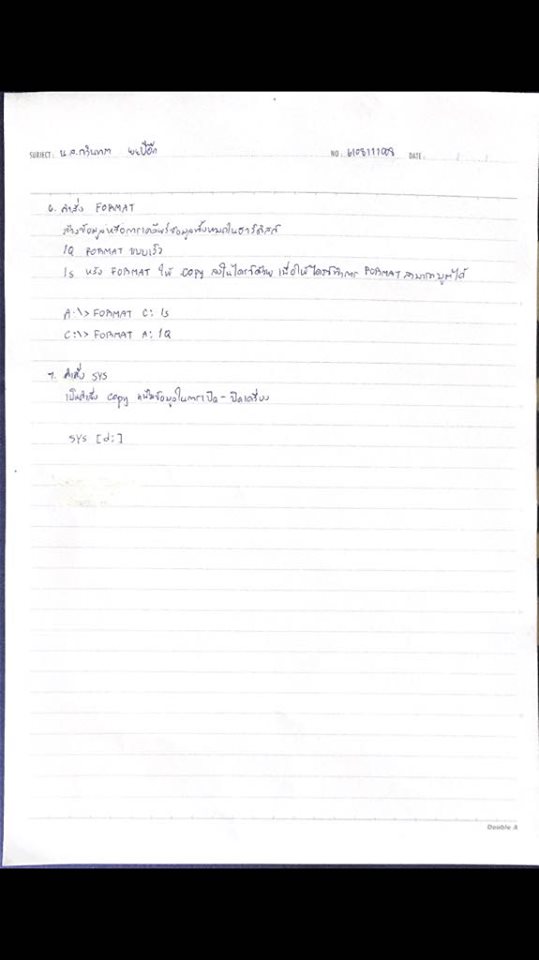 SUBJECT: น.ส. NO: 6108111008 DATE: / /
6. คำสั่ง FORMAT
ล้างข้อมูลหรือการเคลียร์ข้อมูลทั้งหมดในฮาร์ดดิสก์
/Q FORMAT แบบเร็ว
/s หลัง FORMAT ให้ copy ลงในไดรฟ์ด้วย เพื่อให้ไดรฟ์ที่ FORMAT สามารถบูตได้
A:\> FORMAT C: /s
C:\> FORMAT A: /Q
7. คำสั่ง SYS
เป็นคำสั่ง copy ข้อมูลในการเปิด - ปิดเครื่อง
SYS [d:]
Double A